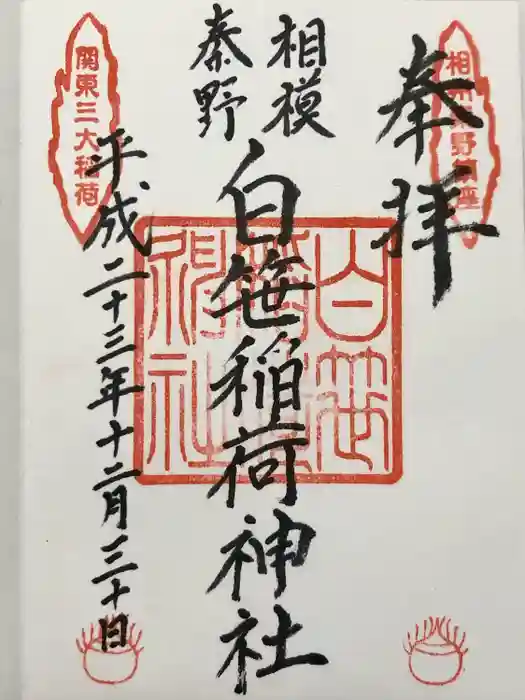 奉拝
相州秦野鎮座
相模
秦野
白笹稲荷神社
白笹稲荷神社
平成二十三年十二月三十日
関東三大稲荷